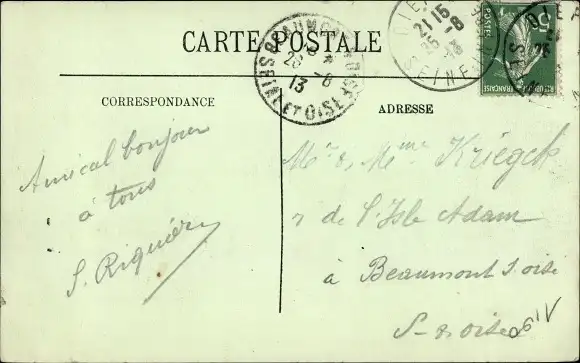 CARTE POSTALE
CORRESPONDANCE
ADRESSE
Amical bonjour
à tous
S. Riquiér
Mr & Mme Kriegck
r de l'Isle Adam
à Beaumont s oise
S- & oise
BEAUMONT
26 -8
13
SEINE ET OISE
DIEPPE
21 15
26 -8
SEINE
5c
POSTES
REPUBLIQUE FRANÇAISE